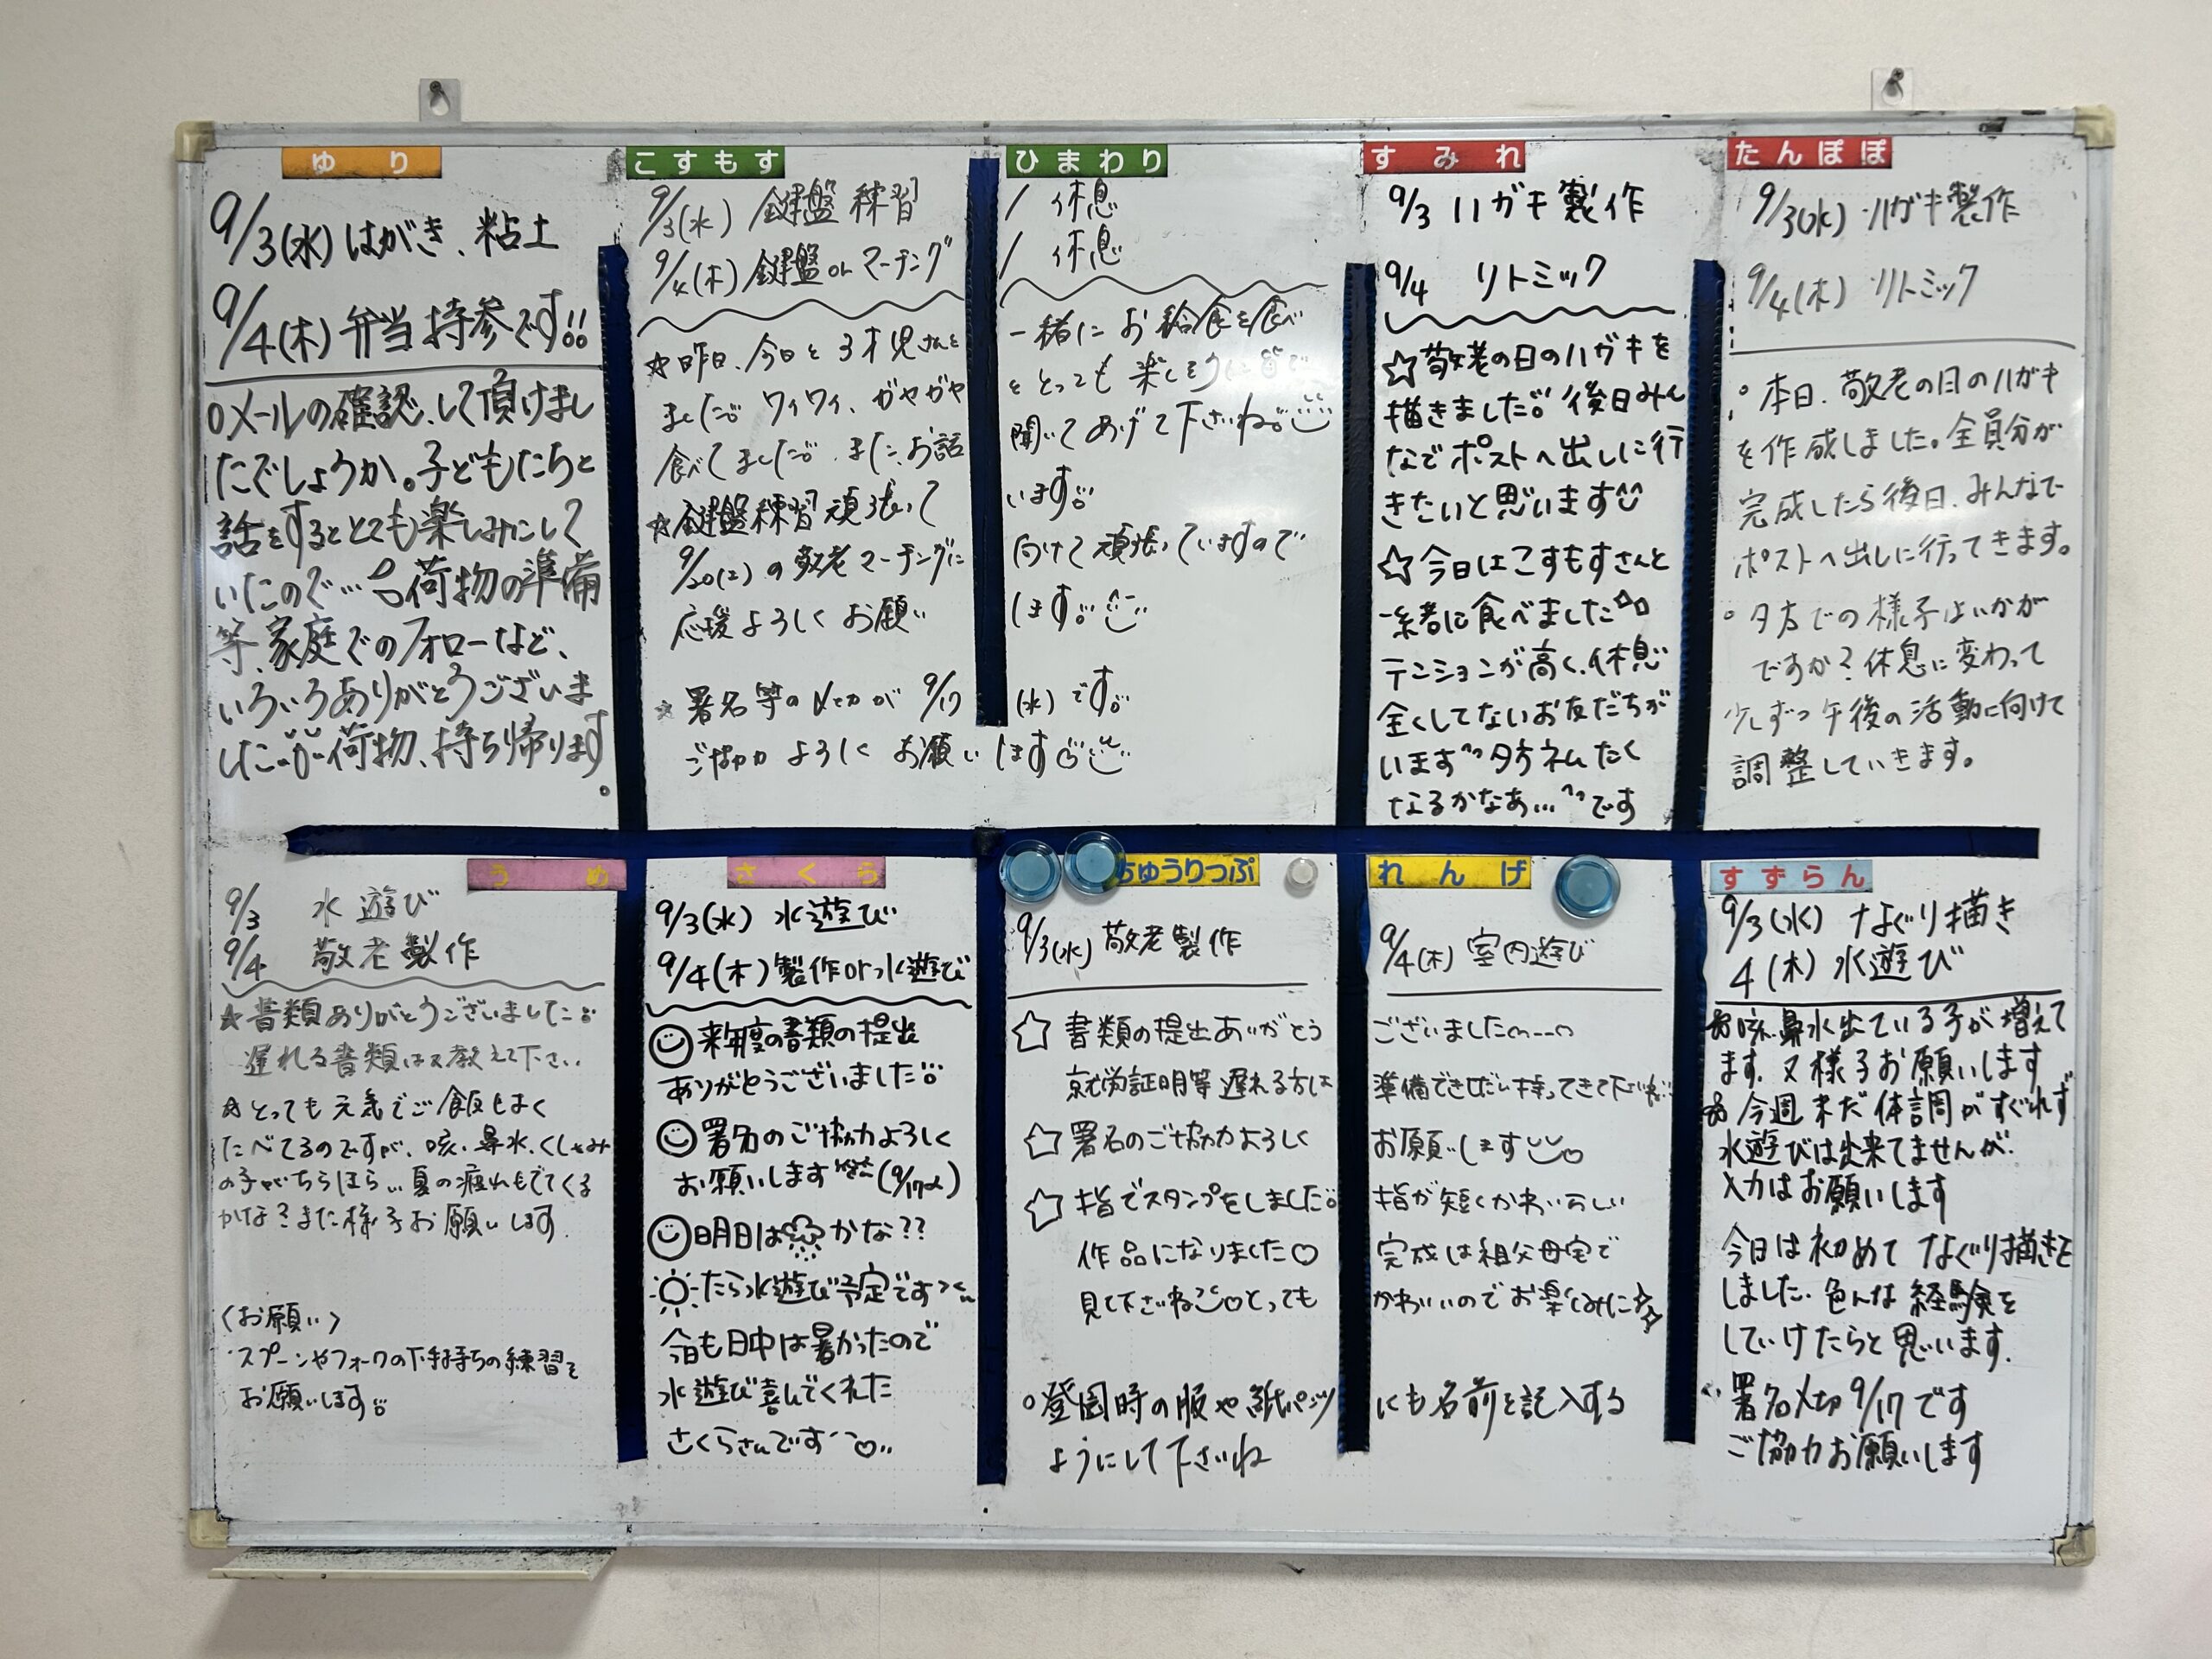 ゆり
9/3(水) はがき、粘土
9/4(木) 弁当持参です!!
○メールの確認、して頂けまし
たでしょうか。子どもたちと
話をするととても楽しみにして
いたので… 荷物の準備
等、家庭でのフォローなど、
いろいろありがとうございま
した 荷物、持ち帰ります。
こすもす ひまわり
9/3(水) 鍵盤練習 / 休息
9/4(木) 鍵盤orマーチング / 休息
☆昨日、今日と3才児さんと 一緒にお給食を食べ
ました。ワイワイ、ガヤガヤ ととっても楽しそうに皆で
食べてました。また、お話 聞いてあげて下さいね。
☆鍵盤練習頑張って います。
9/20(土)の敬老マーチングに 向けて頑張っていますので
応援よろしくお願い します。
☆署名等の〆切が 9/17 (水)です。
ご協力よろしくお願いします
すみれ
9/3 ハガキ製作
9/4 リトミック
☆敬老の日のハガキを
描きました。後日みん
なでポストへ出しに行
きたいと思います
☆今日はこすもすさんと
一緒に食べました
テンションが高く、休息
全くしてないお友だちが
います 夕方ネムたく
なるかなあ… です
たんぽぽ
9/3(水) ハガキ製作
9/4(木) リトミック
○本日、敬老の日のハガキ
を作成しました。全員分が
完成したら後日、みんなで
ポストへ出しに行ってきます。
○夕方での様子はいかが
ですか?休息に変わって
少しずつ午後の活動に向けて
調整していきます。
うめ
9/3 水遊び
9/4 敬老製作
☆書類ありがとうございました。
遅れる書類は又教えて下さい..
☆とっても元気でご飯もよく
たべてるのですが、咳、鼻水、くしゃみ
の子がちらほら… 夏の疲れもでてくる
かな?また様子お願いします.
〈お願い〉
・スプーンやフォークの下手持ちの練習を
お願いします。
さくら
9/3(水) 水遊び
9/4(木) 製作or水遊び
来年度の書類の提出
ありがとうございました。
署名のご協力よろしく
お願いします (9/17〆)
明日は かな??
たら水遊び予定です
今日も日中は暑かったので
水遊び喜んでくれた
さくらさんです
ちゅうりっぷ れんげ
9/3(水) 敬老製作 9/4(木) 室内遊び
☆ 書類の提出ありがとう ございました
就労証明等遅れる方は 準備できしだい持ってきて下さいね
☆ 署名のご協力よろしく お願いします
☆ 指でスタンプをしました。 指が短くかわいらしい
作品になりました♡ 完成は祖父母宅で
見て下さいね♡とっても かわいいのでお楽しみに☆
○登園時の服や紙パンツ にも名前を記入する
ようにして下さいね
すずらん
9/3(水) なぐり描き
4(木) 水遊び
咳、鼻水出ている子が増えて
ます。又様子お願いします
今週まだ体調がすぐれず
水遊びは出来てませんが.
入力はお願いします
今日は初めてなぐり描きを
しました. 色んな経験を
していけたらと思います.
署名〆切 9/17です
ご協力お願いします